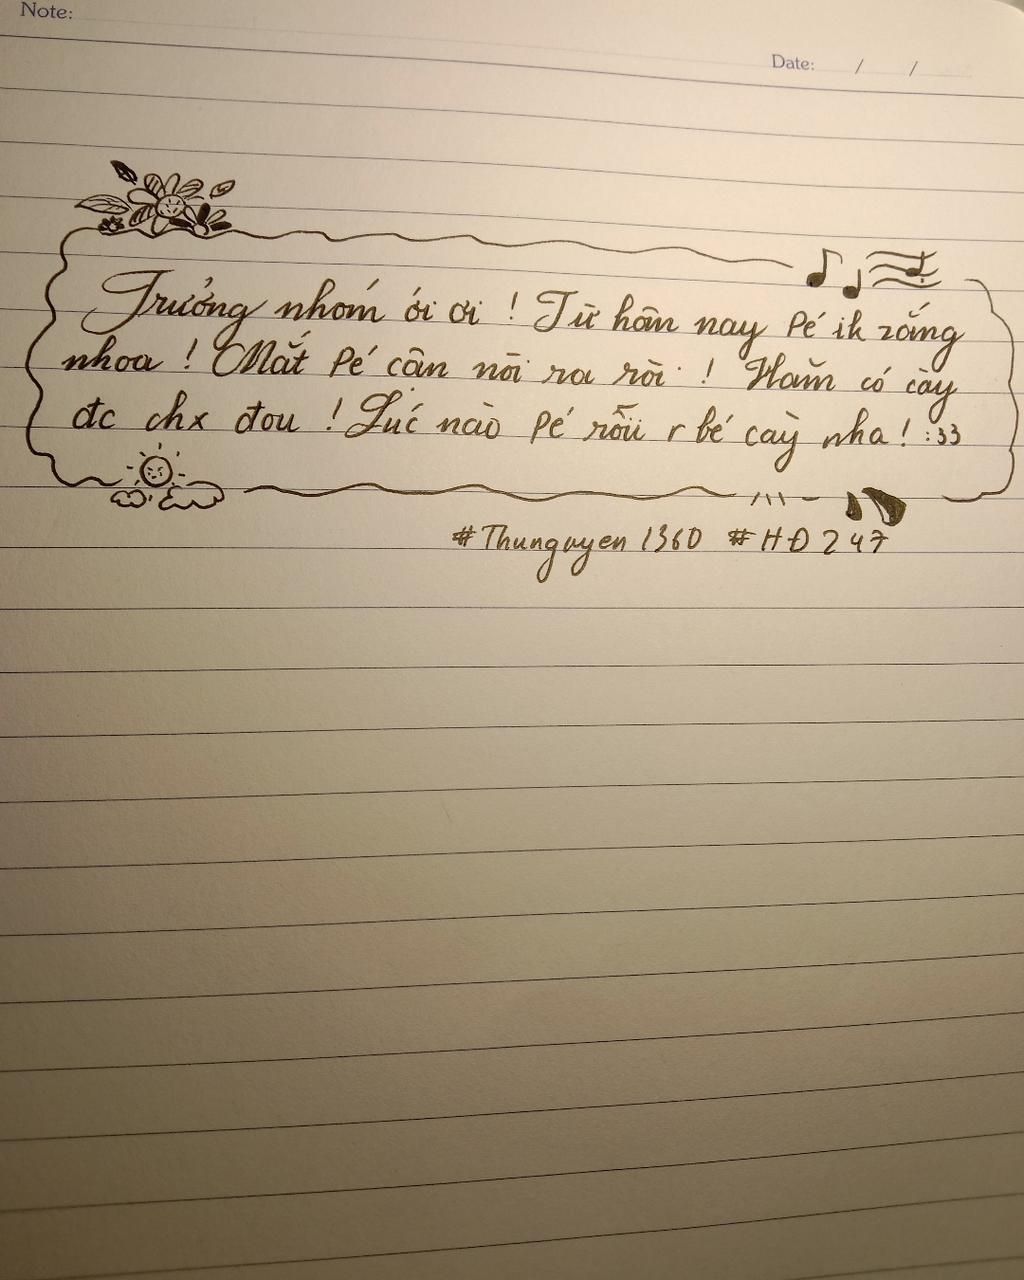 Note:
Date: / /
Trưởng nhóm ới ơi ! Từ hôn nay Pé ik rắng
nhoa ! Mắt Pé cận nồi ra rồi ! Hăm có cày
đc chx đou ! Lúc nào Pé rỗii r bé cày nha ! :33
#Thunguyen 1360 #HĐ 247